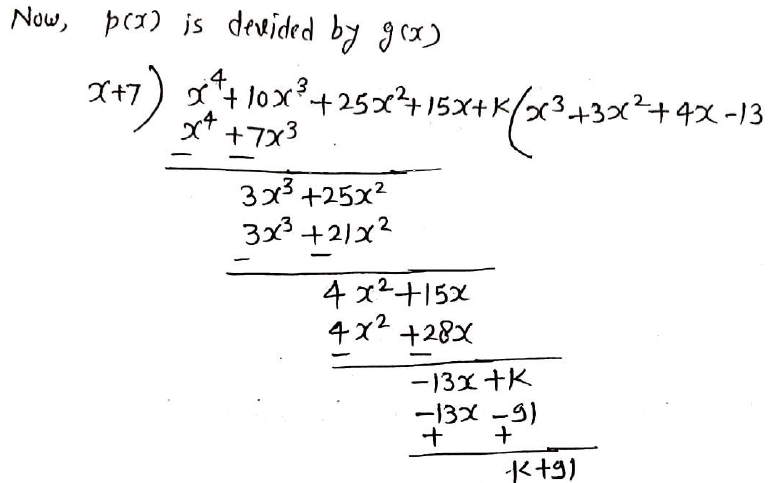 Now, p(x) is devided by g(x)
x+7) x⁴+10x³+25x²+15x+K(x³+3x²+4x-13
x⁴+7x³
- -
3x³+25x²
3x³+21x²
- -
4x²+15x
4x²+28x
- -
-13x+K
-13x-91
+ +
K+91